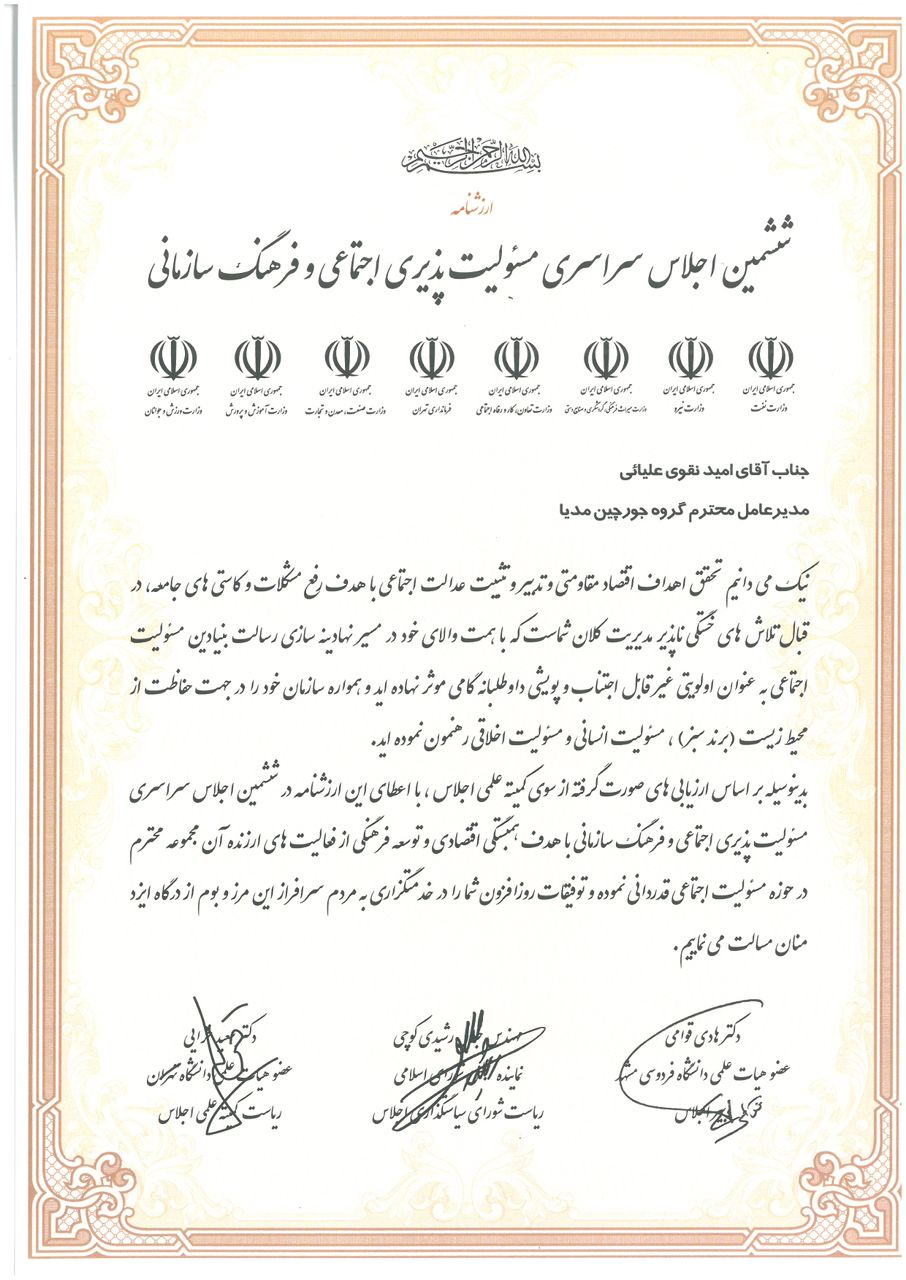 بسم الله الرحمن الرحیم
ارزشنامه
ششمین اجلاس سراسری مسئولیت پذیری اجتماعی و فرهنگ سازمانی
جمهوری اسلامی ایران جمهوری اسلامی ایران جمهوری اسلامی ایران جمهوری اسلامی ایران جمهوری اسلامی ایران جمهوری اسلامی ایران جمهوری اسلامی ایران جمهوری اسلامی ایران
وزارت نفت وزارت نیرو وزارت میراث فرهنگی، گردشگری و صنایع دستی وزارت تعاون، کار و رفاه اجتماعی فرمانداری تهران وزارت صنعت، معدن و تجارت وزارت آموزش و پرورش وزارت ورزش و جوانان
جناب آقای امید نقوی علیائی
مدیرعامل محترم گروه جورچین مدیا
نیک می دانیم تحقق اهداف اقتصاد مقاومتی و تدبیر و تثبیت عدالت اجتماعی با هدف رفع مشکلات و کاستی های جامعه، در
قبال تلاش های خستگی ناپذیر مدیریت کلان شماست که با همت والای خود در مسیر نهادینه سازی رسالت بنیادین مسئولیت
اجتماعی به عنوان اولویتی غیر قابل اجتناب و پویشی داوطلبانه گامی موثر نهاده اید و همواره سازمان خود را در جهت حفاظت از
محیط زیست (برند سبز) ، مسئولیت انسانی و مسئولیت اخلاقی رهنمون نموده اید.
بدینوسیله بر اساس ارزیابی های صورت گرفته از سوی کمیته علمی اجلاس ، با اعطای این ارزشنامه در ششمین اجلاس سراسری
مسئولیت پذیری اجتماعی و فرهنگ سازمانی با هدف همبستگی اقتصادی و توسعه فرهنگی از فعالیت های ارزنده آن مجموعه محترم
در حوزه مسئولیت اجتماعی قدردانی نموده و توفیقات روزافزون شما را در خدمتگزاری به مردم سرافراز این مرز و بوم از درگاه ایزد
منان مسالت می نماییم.
دکتر هادی قوامی مهندس جلال رشیدی کوچی دکتر
عضو هیات علمی دانشگاه فردوسی مشهد نماینده اسلامی عضو هیات علمی دانشگاه تهران
اجلاس ریاست شورای سیاستگذاری اجلاس ریاست کمیته علمی اجلاس